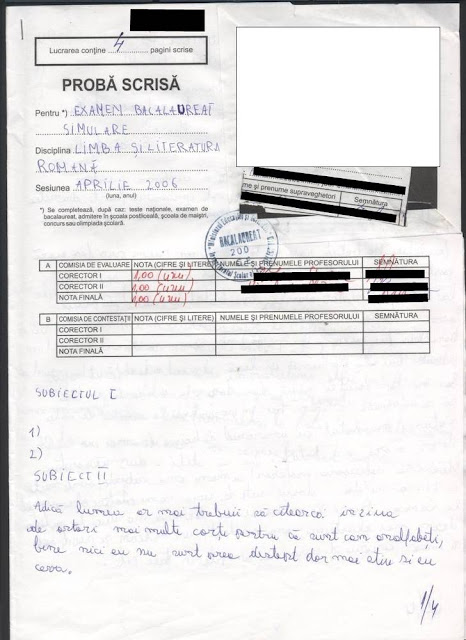 Lucrarea conţine 4 pagini scrise
PROBĂ SCRISĂ
Pentru *) EXAMEN BACALAUREAT
SIMULARE
Disciplina LIMBA ŞI LITERATURA
ROMANĂ
Sesiunea APRILIE 2006
(luna, anul)
*) Se completează, după caz: teste naţionale, examen de
bacalaureat, admitere în şcoala postliceală, şcoala de maiştri,
concurs sau olimpiada şcolară.
me şi prenume supraveghetori
Semnătura
BACALAUREAT
200
A COMISIA DE EVALUARE NOTA (CIFRE ŞI LITERE) NUMELE ŞI PRENUMELE PROFESORULUI SEMNĂTURA
CORECTOR I 1,00 (unu)
CORECTOR II 1,00 (unu)
NOTA FINALĂ 1,00 (unu)
B COMISIA DE CONTESTAŢII NOTA (CIFRE ŞI LITERE) NUMELE ŞI PRENUMELE PROFESORULUI SEMNĂTURA
CORECTOR I
CORECTOR II
NOTA FINALĂ
SUBIECTUL I
1)
2)
SUBIECT II
Adică lumea ar mai trebuii să citească în ziua
de astazi mai multe carti pentru că sunt cam analfabeţi,
bine nici eu nu sunt prea destept dar mai stiu si eu
ceva.
1/4